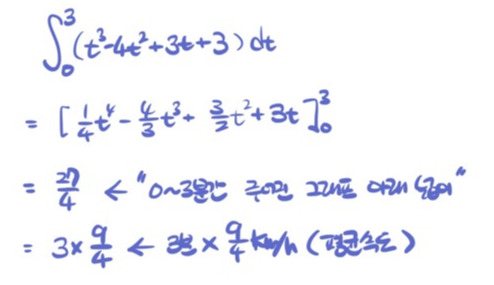 ∫₀³ (t³-4t²+3t+3) dt
= [ 1/4 t⁴ - 4/3 t³ + 3/2 t² + 3t ]₀³
= 27/4 ← "0~3분간 주어진 그래프 아래 넓이"
= 3 × 9/4 ← 3분 × 9/4 km/h (평균속도)